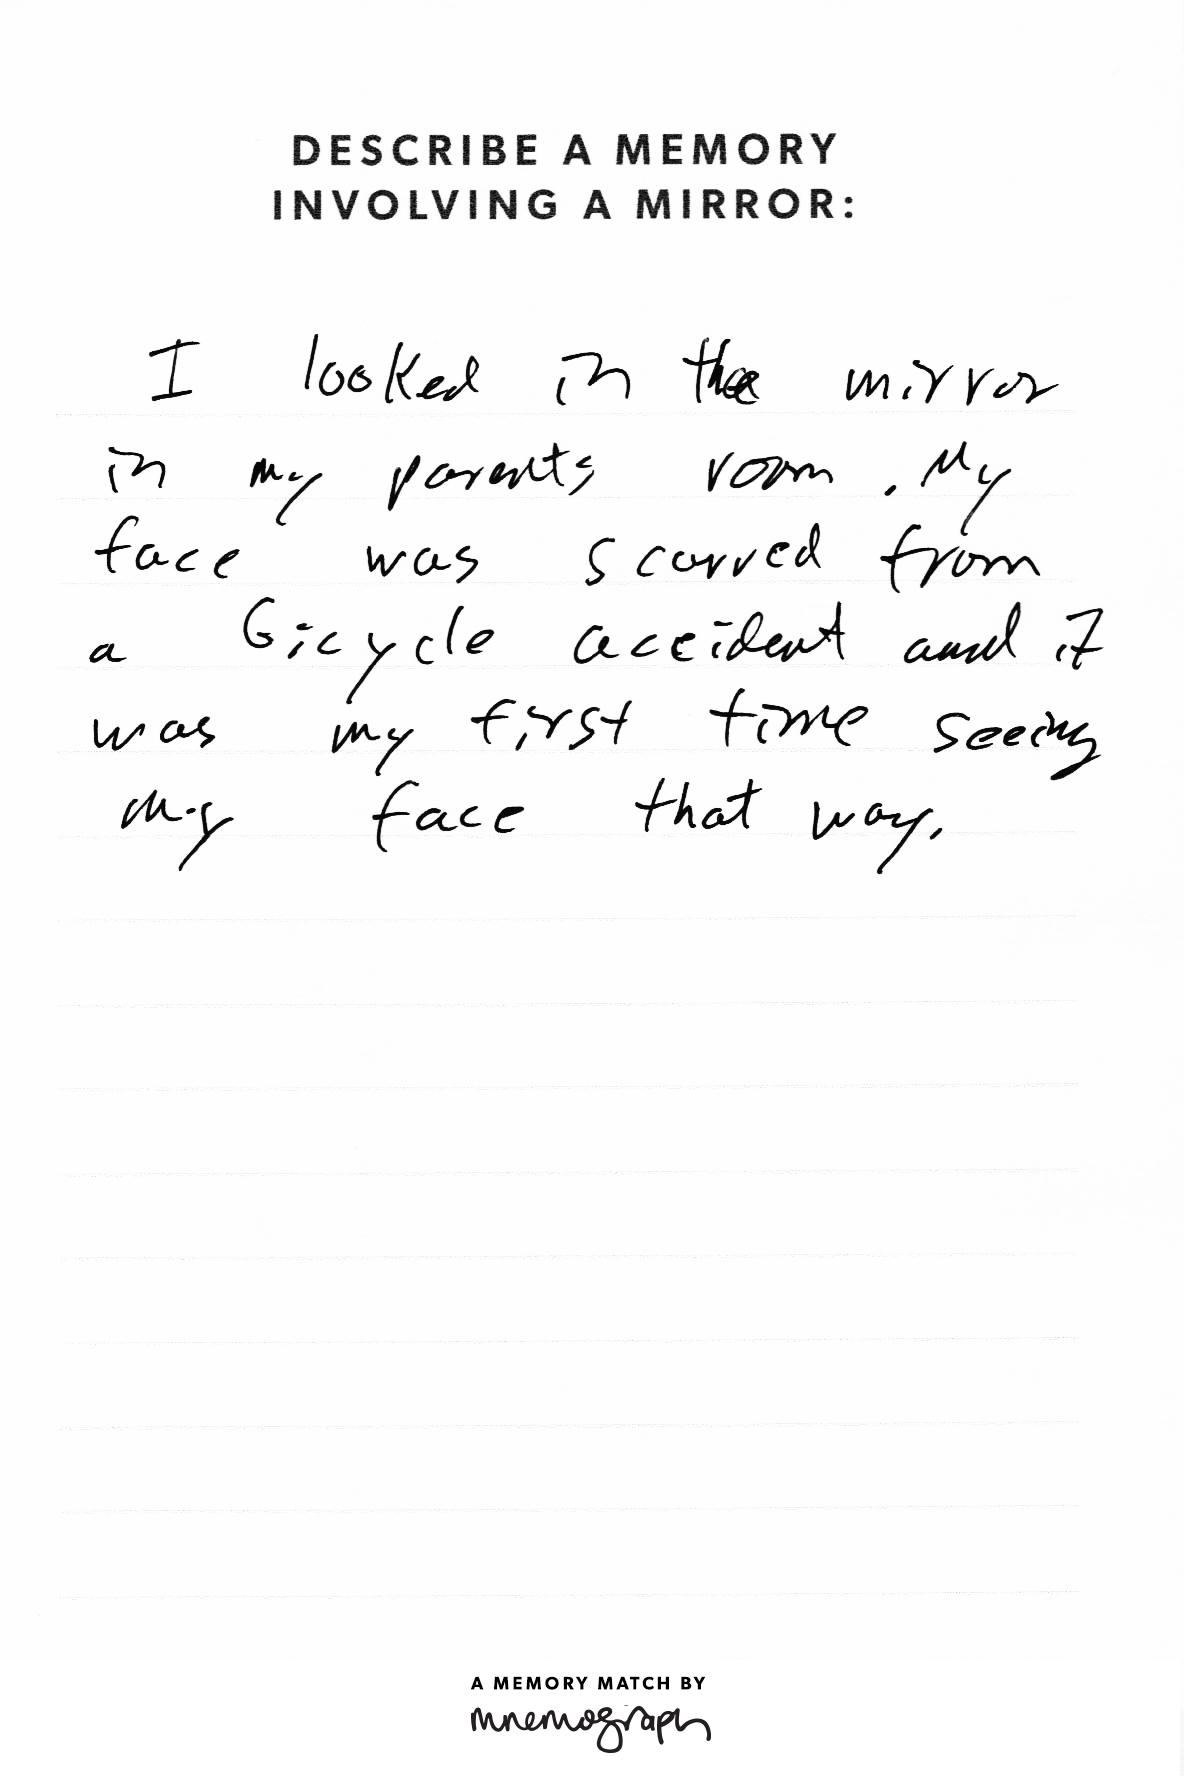 DESCRIBE A MEMORY
INVOLVING A MIRROR:
I looked in the mirror
in my parents room. My
face was scarred from
a bicycle accident and it
was my first time seeing
my face that way.
A MEMORY MATCH BY
mnemograph